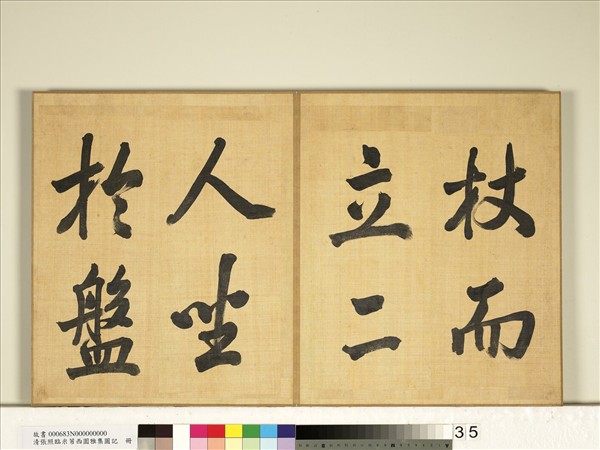 杖而
立二
人坐
於盤
故書 000683N000000000
清張照臨米芾西園雅集圖記 冊
35